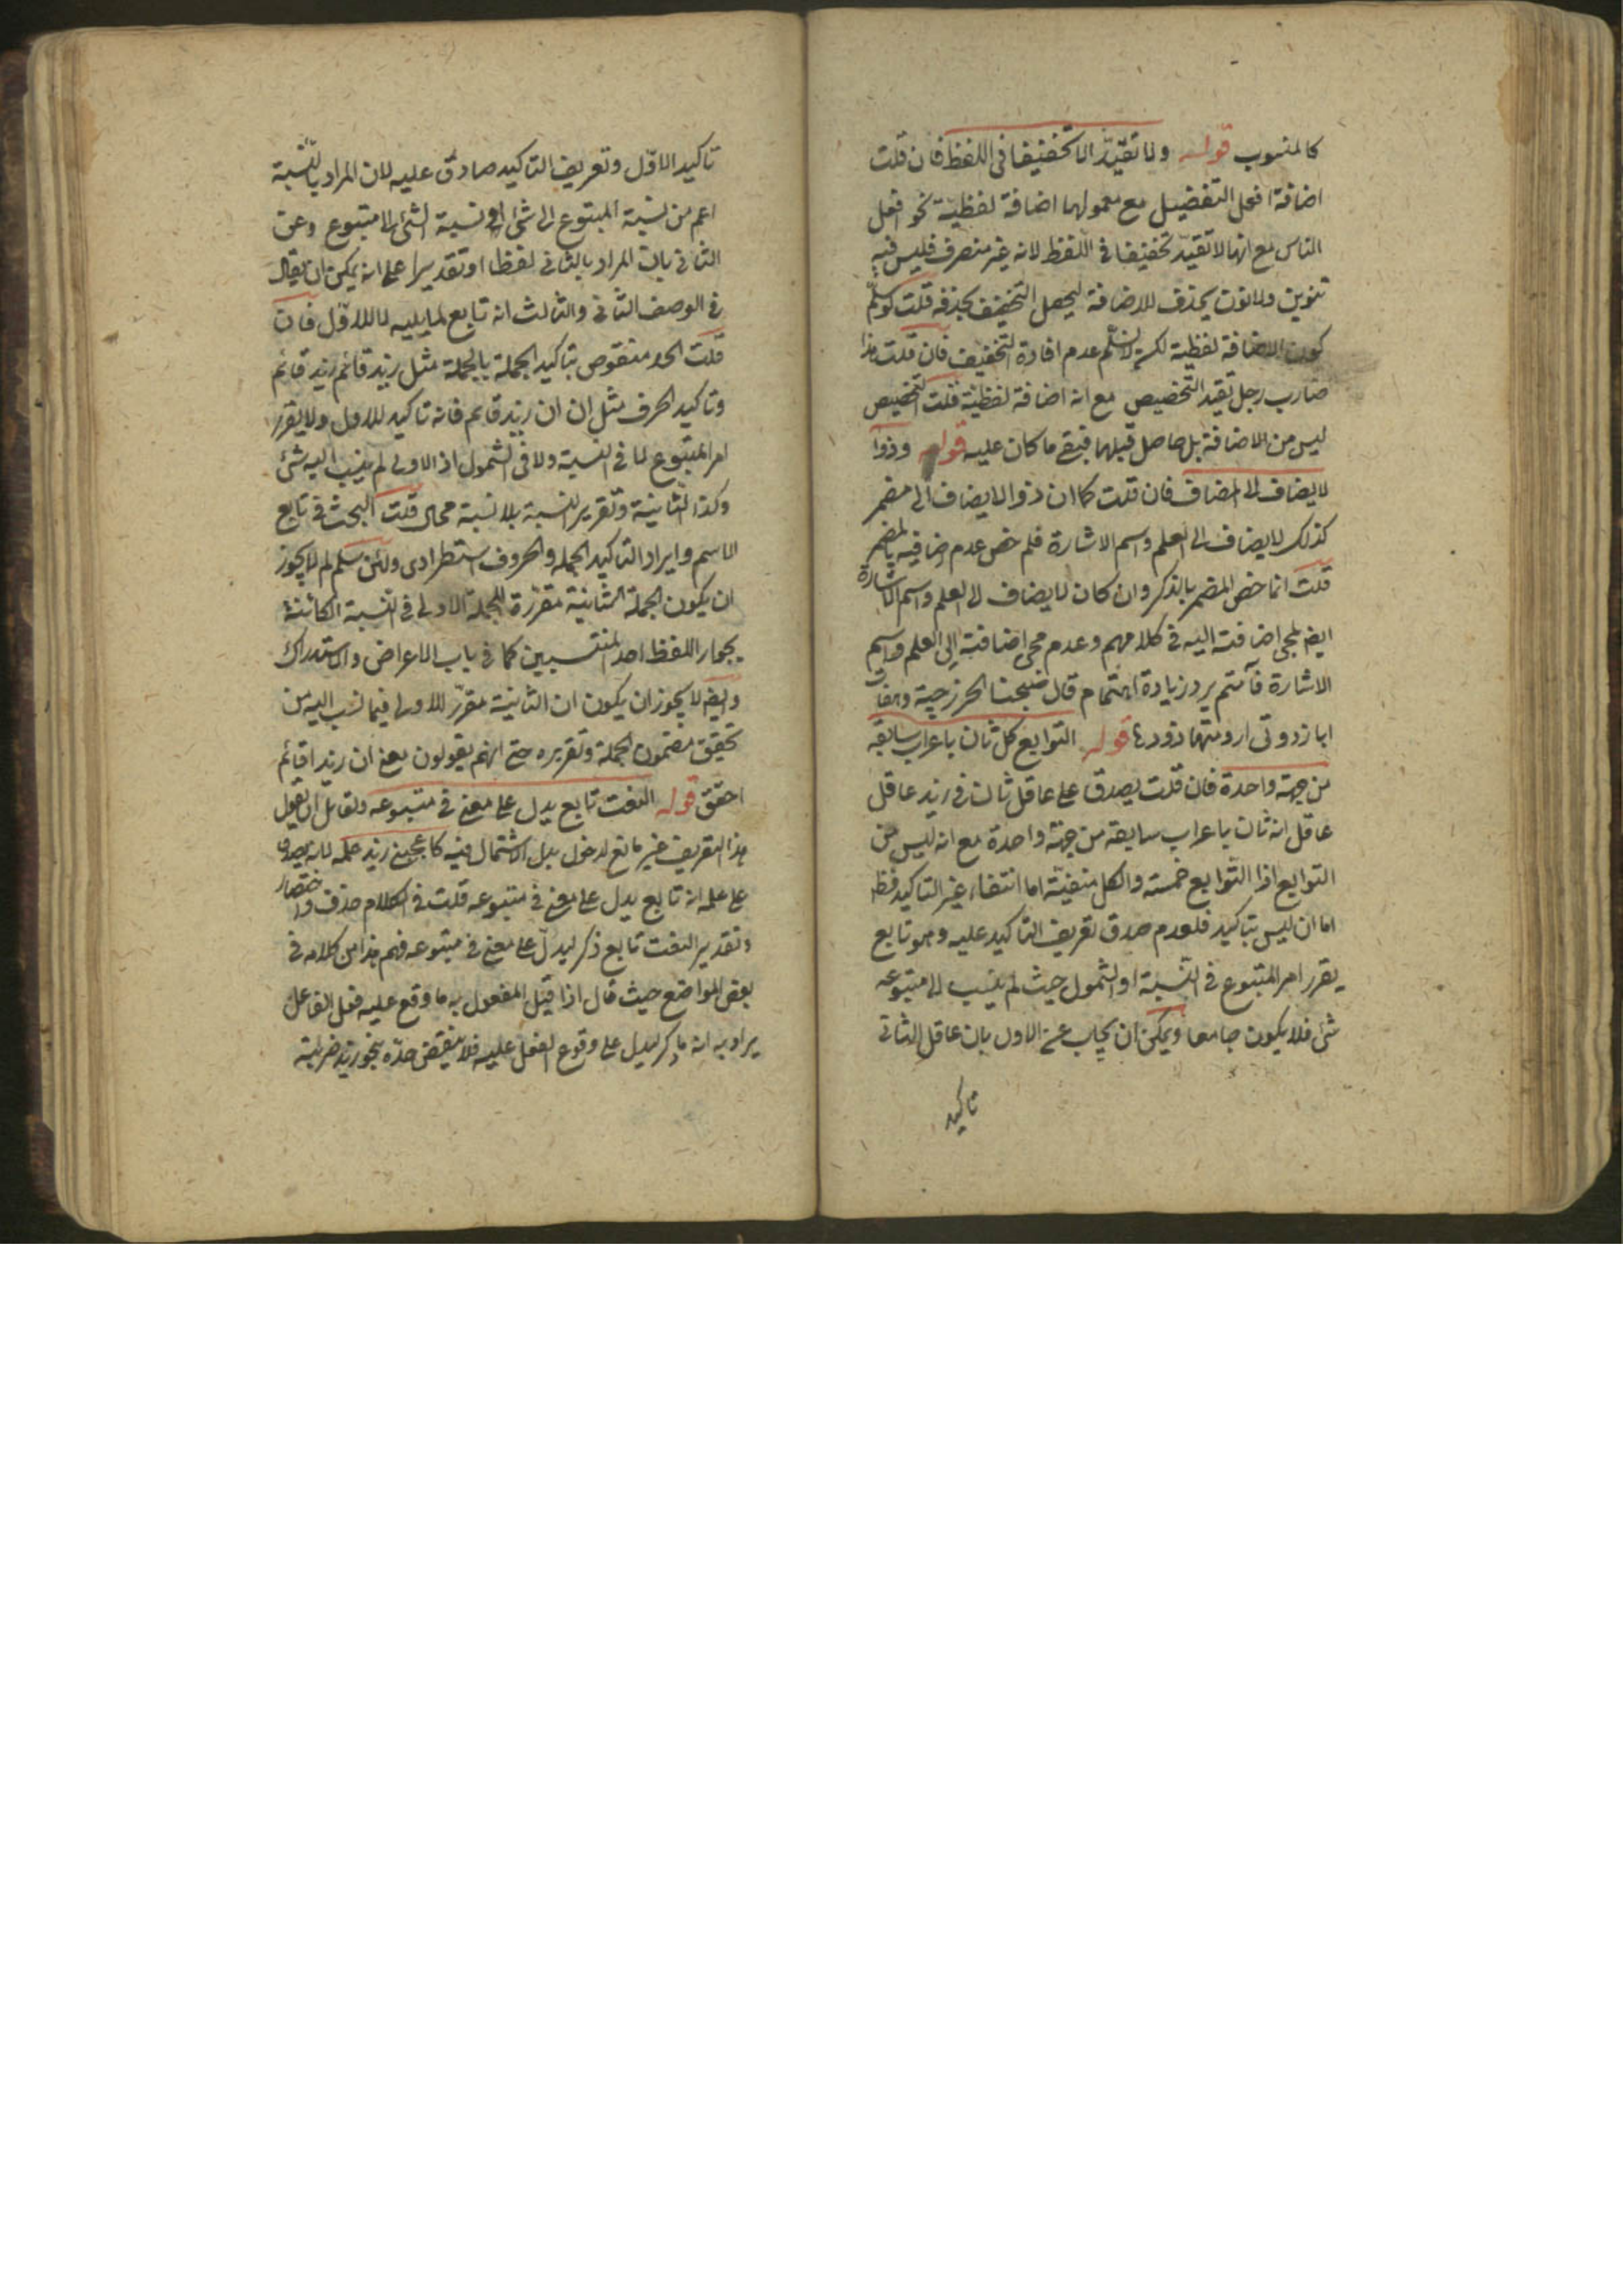 كالمنسوب قوله ولا تفيد الا تخفيفا فى اللفظ فان قلت
اضافة افعل التفضيل مع معمولها اضافة لفظية نحو افعل
الناس مع انها لا تفيد تخفيفا فى اللفظ لانه غير منصرف فليس فيه
تنوين ولا نون يحذف للاضافة ليحصل التخفيف بحذفه قلت لو سلم
كون الاضافة لفظية لكن لا نسلم عدم افادة التخفيف فان قلت هذا
ضارب رجل تفيد التخصيص مع انه اضافة لفظية قلت التخصيص
ليس من الاضافة بل حاصل قبلها فبقى ما كان عليه قوله وذوا
لا يضاف الى المضاف فان قلت كما ان ذوا لا يضاف الى مضمر
كذلك لا يضاف الى العلم واسم الاشارة فلم خص عدم اضافيه بالمضمر
قلت انما خص المضمر بالذكر وان كان لا يضاف الى العلم واسم الاشارة
ايض لمجى اضافته اليه فى كلامهم وعدم مجى اضافته الى العلم واسم
الاشارة فاهتم برد زيادة اهتمام قال صبحنا الخزرجية مرهفات
ابا ذوى ارومتها ذووها قوله التوابع كل ثان باعراب سابقه
من جهة واحدة فان قلت يصدق على عاقل ثالث فى زيد عاقل
عاقل انه ثان باعراب سابقه من جهة واحدة مع انه ليس من
التوابع اذا التوابع خمسة والكل منفية اما انتفاء غير التاكيد فظ
اما ان ليس بتاكيد فلعدم صدق تعريف التاكيد عليه وهو تابع
يقرر امر المتبوع فى النسبة او الشمول حيث لم ينسب الى متبوعه
شئ فلا يكون جامعا ويمكن ان يجاب عن الاول بان عاقل الثانى
تاكيد
تاكيد الاول وتعريف التاكيد صادق عليه لان المراد بالنسبة
اعم من نسبة المتبوع الى شئ او نسبة الشئ الى المتبوع وعن
الثانى بان المراد بالثانى لفظا او تقديرا على انه يمكن ان يقال
فى الوصف الثانى والثالث انه تابع لما يليه لا للاول فان
قلت الحد منقوص بتاكيد الجملة بالجملة مثل زيد قائم زيد قائم
وتاكيد الحرف مثل ان ان زيد قائم فانه تاكيد للاول ولا يقرر
امر المتبوع لا فى النسبة ولا فى الشمول اذ الاولى لم ينسب اليه شئ
وكذا الثانية وتقرير النسبة بلا نسبة محال قلت البحث فى تابع
الاسم وايراد التاكيد الجملة والحروف استطرادى ولئن سلم لم لا يجوز
ان يكون الجملة الثانية مقررة للجملة الاولى فى النسبة الكائنة
بجوار اللفظ احد المنتسبين كما فى باب الاعراض والاستدراك
وايض لا يجوز ان يكون ان الثانية مقرر للاولى فيما نسب اليه من
تحقيق مضمون الجملة وتقريره حتى انهم يقولون معنى ان زيدا قائم
احقق قوله النعت تابع يدل على معنى فى متبوعه ولقائل ان يقول
هذا التعريف غير مانع لدخول بدل الاشتمال فيه كاعجبنى زيد علمه لانه يصدق
على علمه انه تابع يدل على معنى فى متبوعه قلت فى الكلام حذف واختصار
وتقدير النعت تابع ذكر ليدل على معنى فى متبوعه فهم هذا من كلامه فى
بعض المواضع حيث قال اذا قيل المفعول به ما وقع عليه فعل الفاعل
يراد به انه ما ذكر ليدل على وقوع الفعل عليه فلا ينتقض حده بنحو زيد ضربته